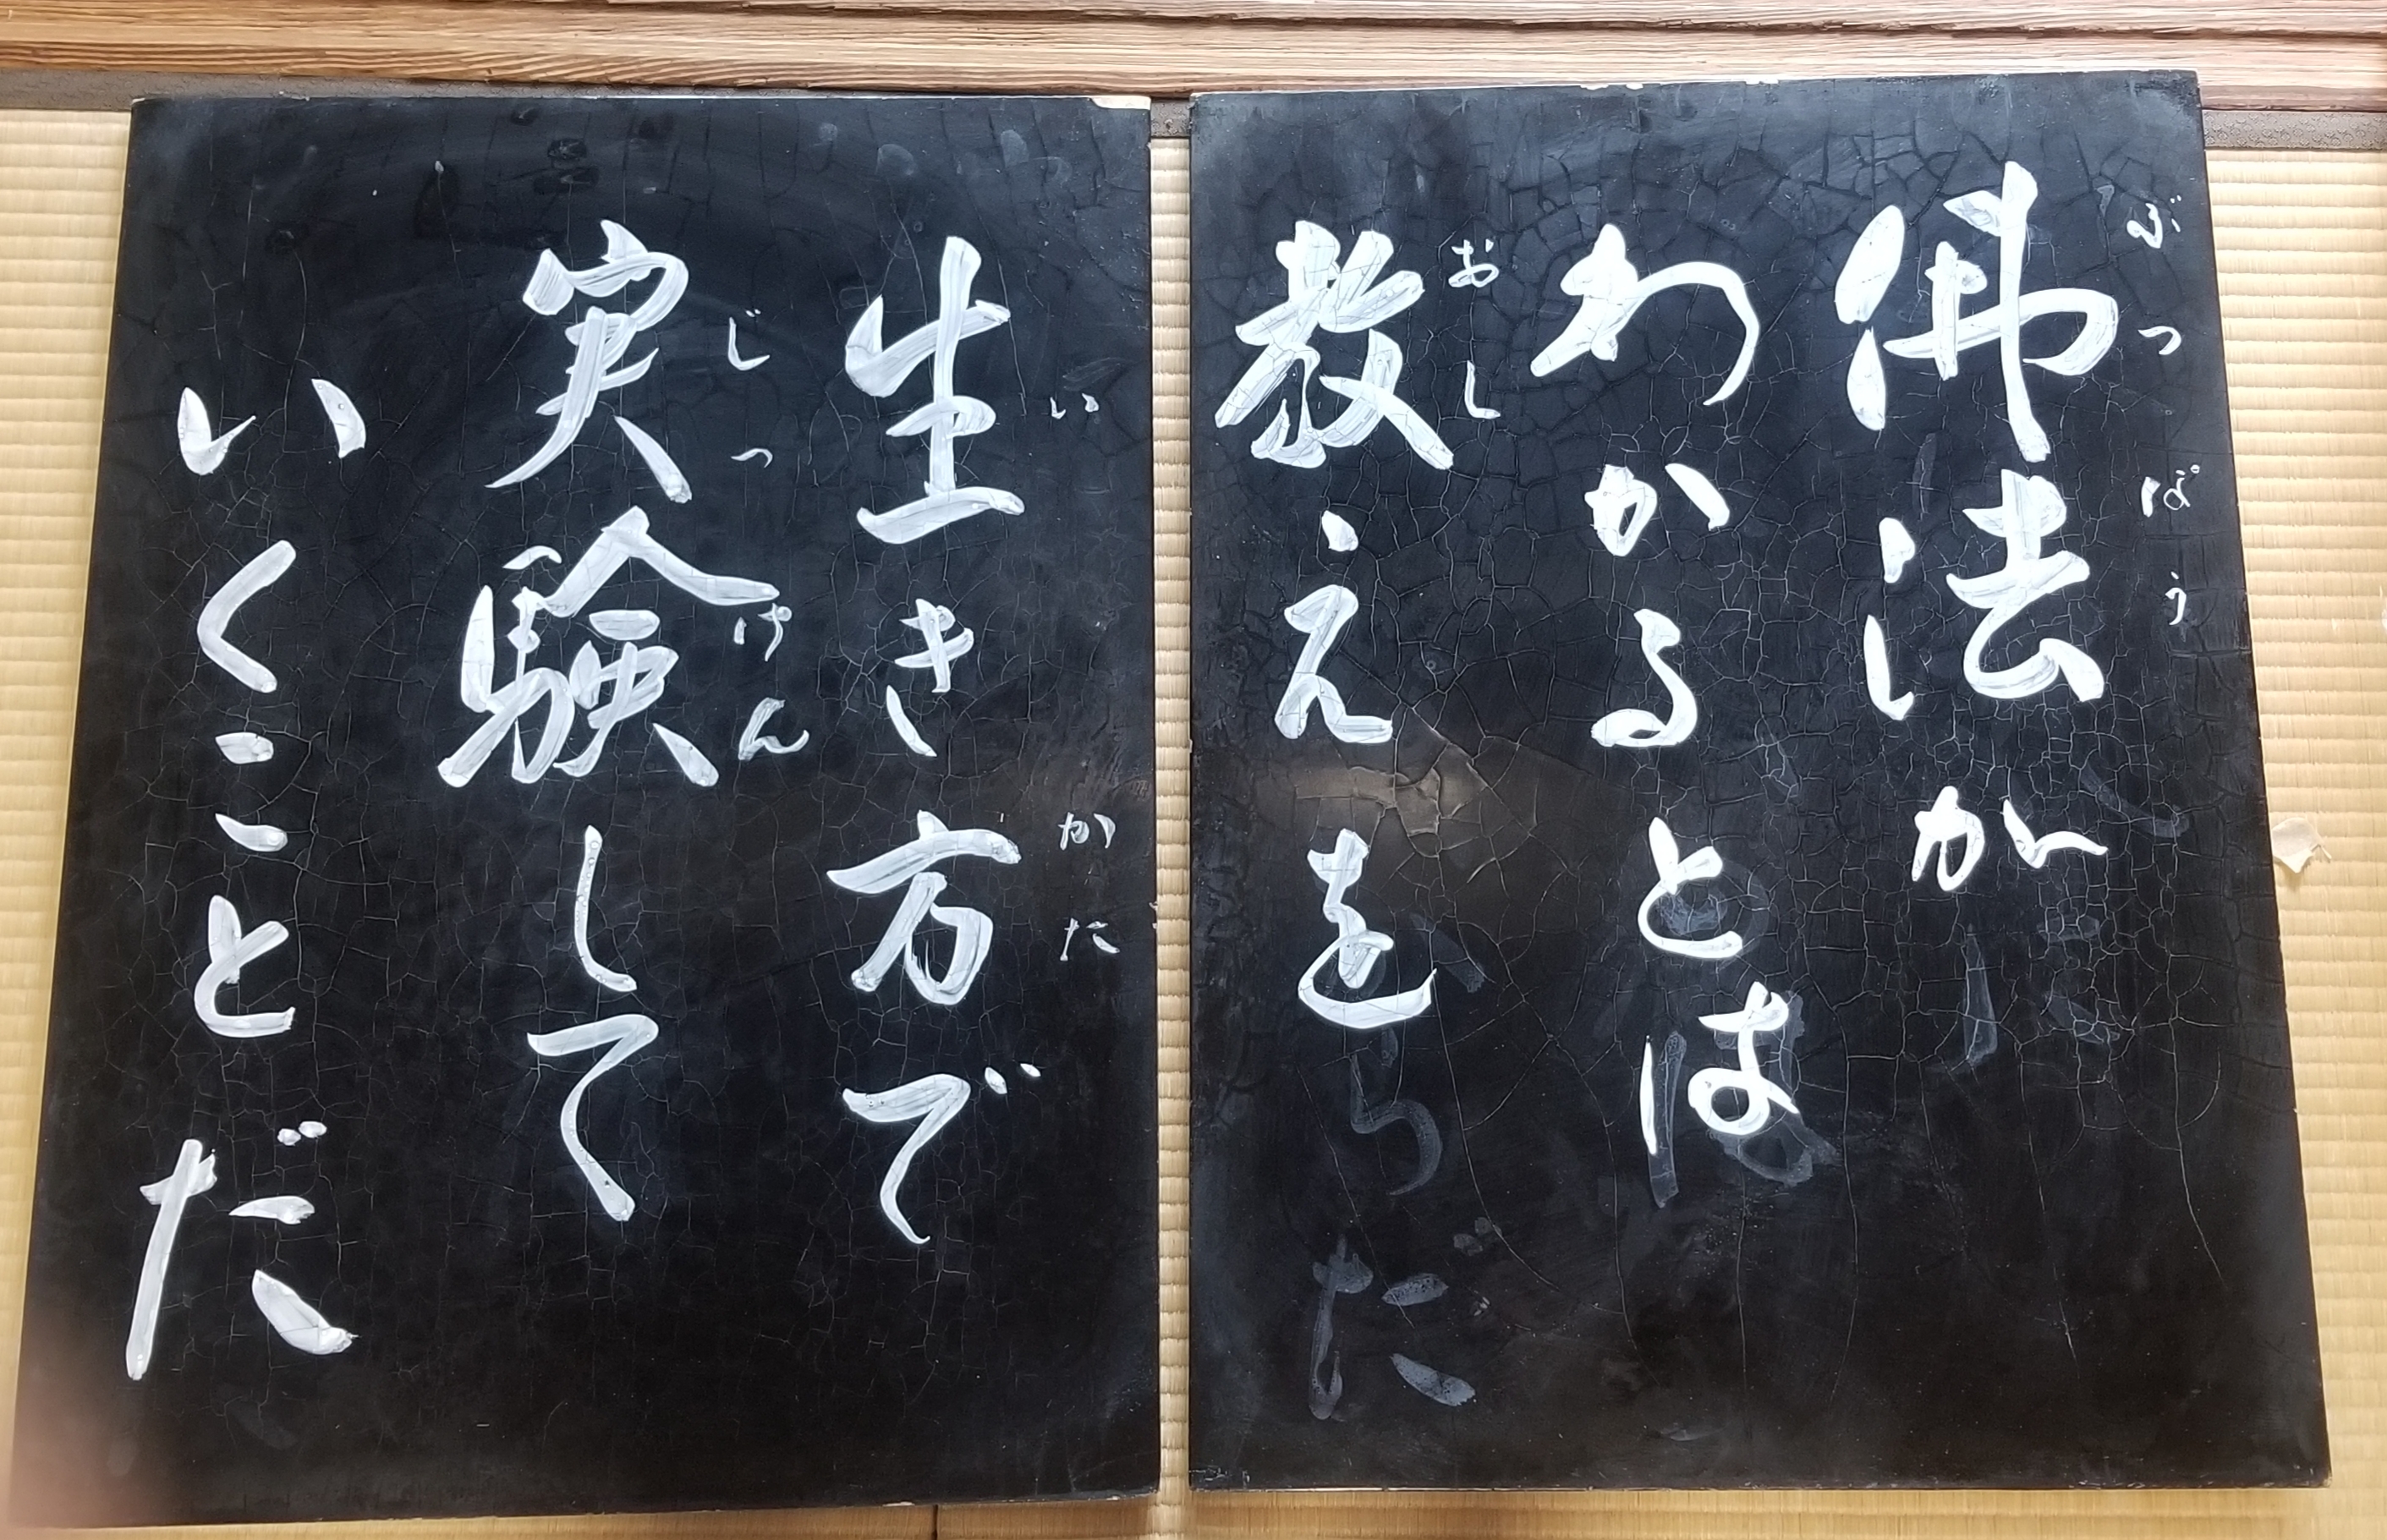 佛法が
ぶっぽう
わかるとは
教えを
おし
生き方で
い
かた
実験して
じっけん
いくことだ